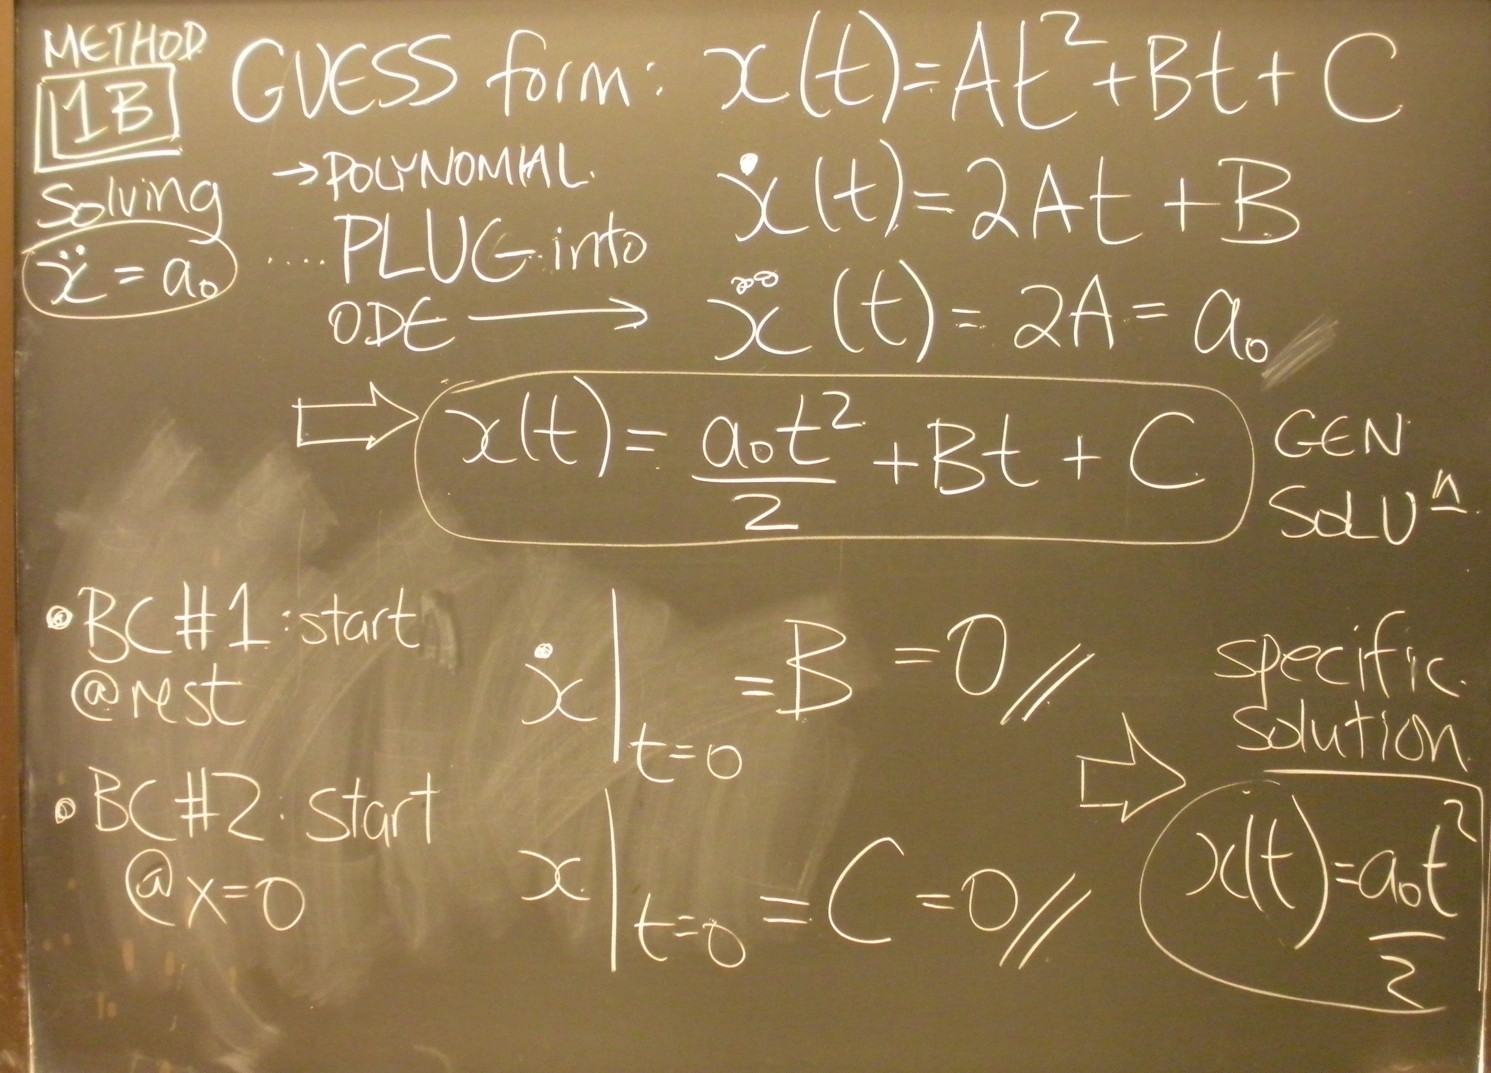 METHOD
1B
GUESS form: x(t)=At²+Bt+C
→POLYNOMIAL.
ẋ(t)=2At+B
Solving
ẍ=a₀
....PLUG into
ODE → ẍ(t)=2A=a₀
⇒ x(t)=a₀t²/2+Bt+C
GEN
SOLUⁿ
• BC#1: start
@rest
ẋ|t=0 =B=0//
• BC#2: start
@x=0
x|t=0 =C=0//
specific
solution
⇒ x(t)=a₀t²/2